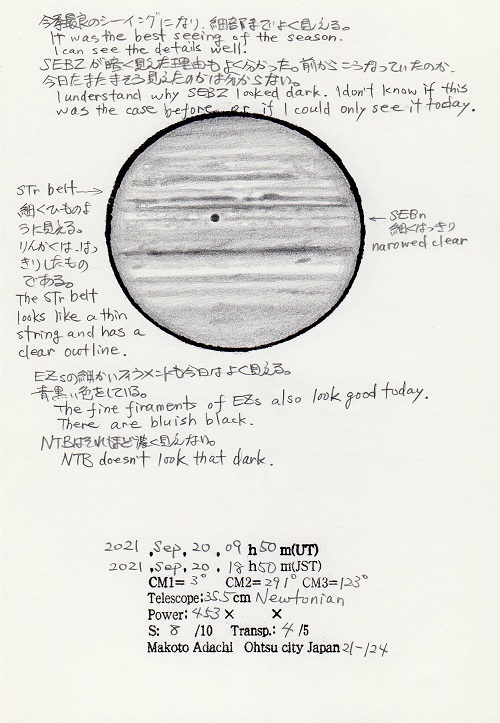 今季最良のシーイングになり、細部までよく見える。
It was the best seeing of the season.
I can see the details well.
SEBZが暗く見えた理由もよく分かった。前からこうなっていたのか、
今日たまたまそう見えたのかは分からない。
I understand why SEBZ looked dark. I don't know if this
was the case before, or if I could only see it today.
STr belt →
細くひものよ
うに見える。
りんかくは、はっ
きりしたもの
である。
The STr belt
looks like a thin
string and has a
clear outline.
← SEBn
細くはっきり
narowed clear
EZsの細かいフィラメントも今日はよく見える。
青黒い色をしている。
The fine firaments of EZs also look good today.
There are bluish black.
NTBはそれほど濃く見えない。
NTB doesn't look that dark.
2021 ,Sep, 20 , 09 h 50 m(UT)
2021 ,Sep, 20 , 18 h 50 m(JST)
CM1= 3° CM2= 291° CM3= 123°
Telescope; 35.5 cm Newtonian
Power; 453 × ×
S: 8 /10 Transp.: 4 /5
Makoto Adachi Ohtsu city Japan 21-124